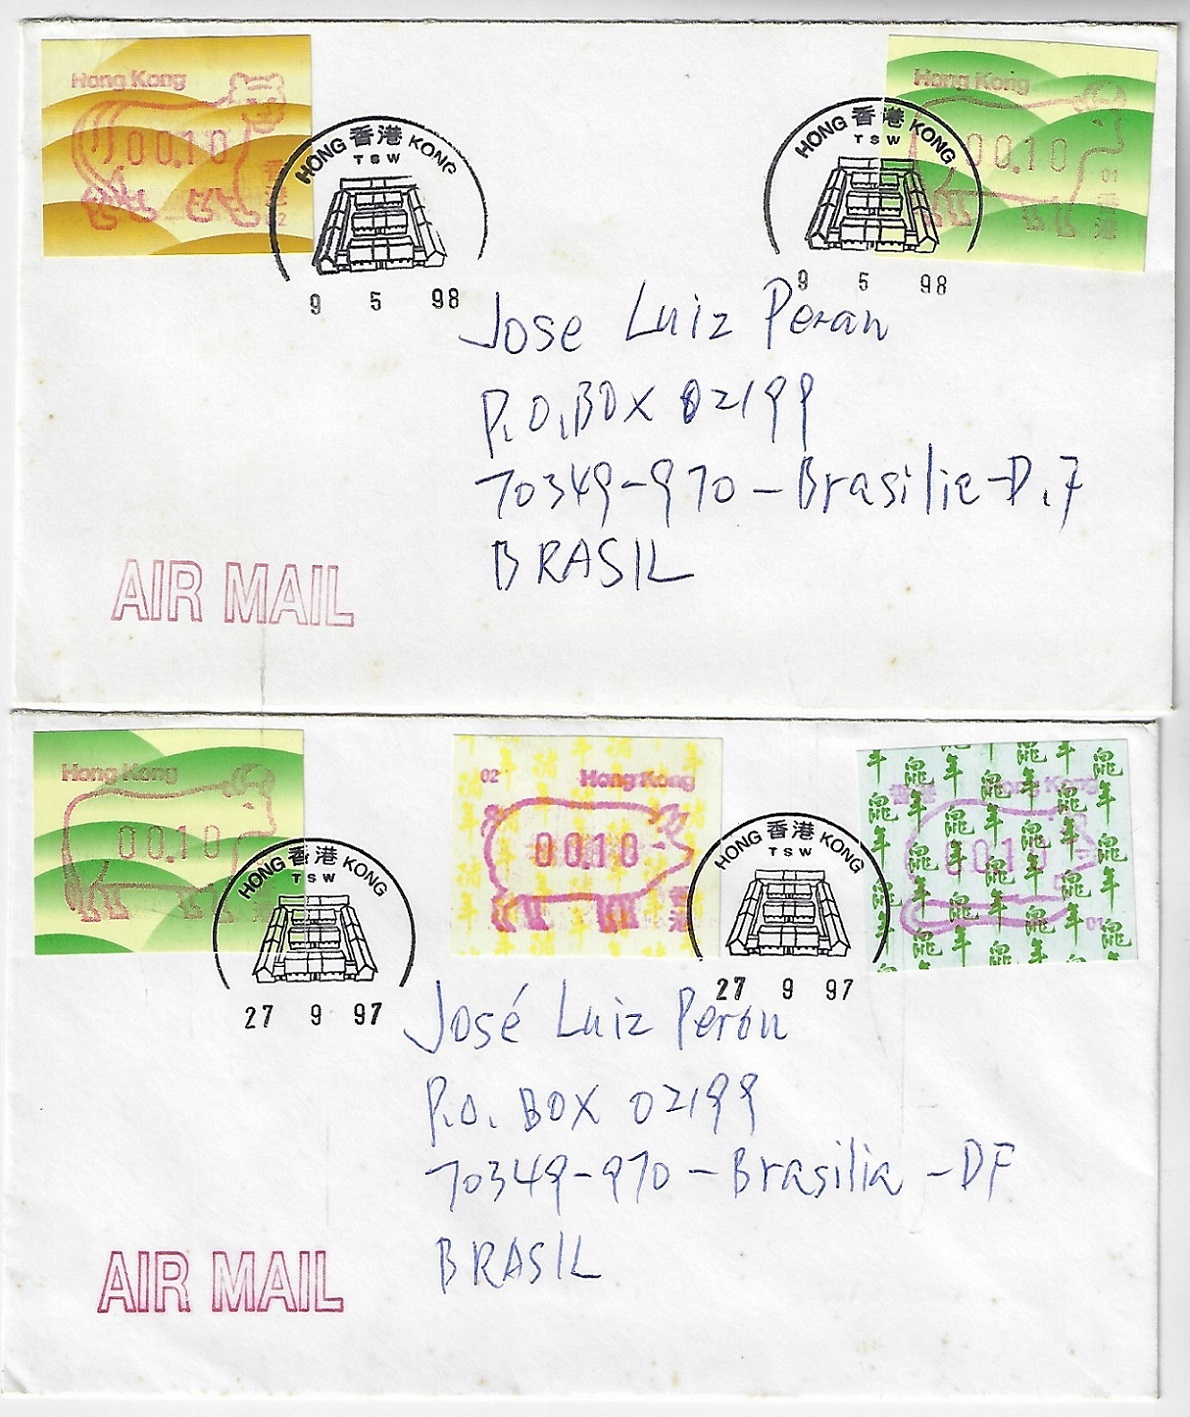 Hong Kong
00.10
香港
02
HONG 香港 KONG
TSW
9 5 98
HONG 香港 KONG
TSW
9 5 98
Hong Kong
00.10
01
香港
Jose Luiz Peran
P.O.BOX 02199
70349-970-Brasilia-D.F
BRASIL
AIR MAIL
Hong Kong
00.10
HONG 香港 KONG
TSW
27 9 97
02
Hong Kong
00.10
香港
HONG 香港 KONG
TSW
27 9 97
Hong Kong
00.10
01
鼠年
José Luiz Peron
P.O. BOX 02199
70349-970-Brasilia-DF
BRASIL
AIR MAIL